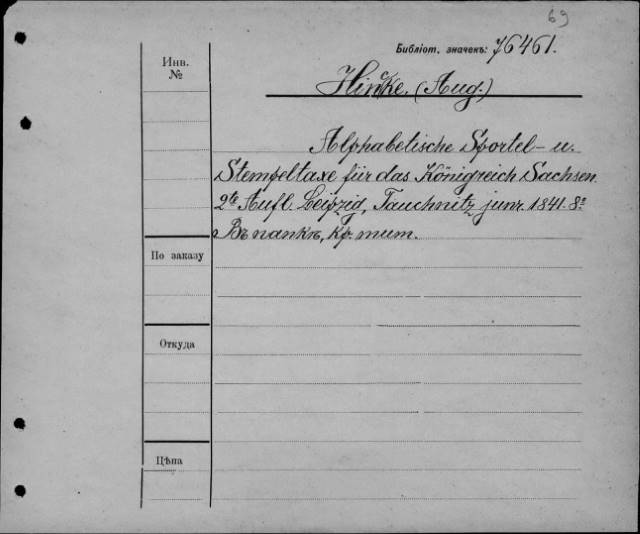 69
Библіот. значекъ: 76461.
Инв.
№
Hincke. (Aug.)
Alphabetische Sportel- u.
Stempeltaxe für das Königreich Sachsen.
2te Aufl. Leipzig, Tauchnitz junr. 1841. 8º
Въ папкѣ, кр. тит.
По заказу
Откуда
Цѣна